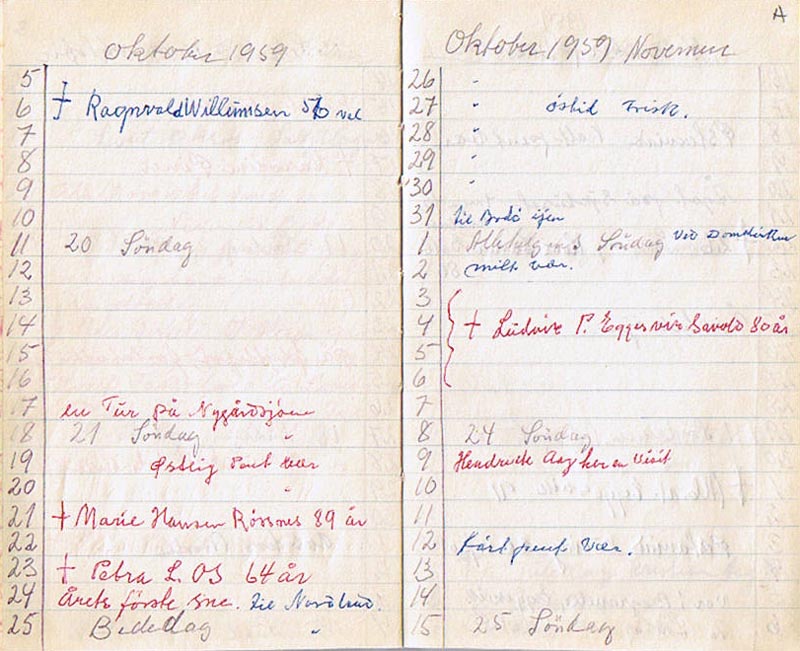 Oktober 1959
5
6 † Ragnvald Willumsen 56 vel
7
8
9
10
11 20 Søndag
12
13
14
15
16
17 en Tur på Nygårdsjøen
18 21 Søndag "
19 Østlig Pent Vær
20 "
21 † Marie Hansen Røssnes 89 år
22
23 † Petra L. OS 64 år
24 Årets første sne. til Nordland.
25 Bededag "
A
Oktober 1959 November
26 "
27 " östid frisk.
28 "
29 "
30 "
31 til Bodö ijen
1 Söndag ved Domkirken
2 milt vær.
3
4 † Ludvig P. Eggesvik Saivold 80 år
5
6
7
8 24 Søndag
9 Hendrik Aag her en Visit
10
11
12 pent Vær.
13
14
15 25 Söndag